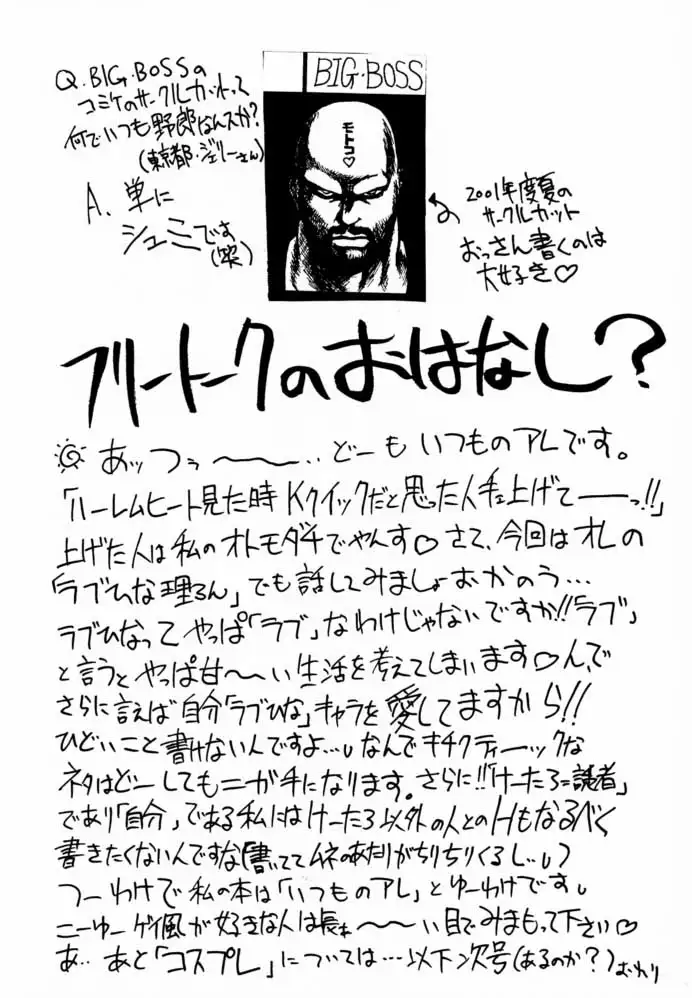 Q. BIG・BOSSの
コミケのサークルカットって
何でいつも野郎なんスか?
(東京都・ジェリーさん)
A. 単に
シュミです
(笑)
BIG・BOSS
モトコ♡
2001年度夏の
サークルカット
おっさん書くのは
大好き♡
フリートークのおはなし?
あッつぅ〜〜‥どーも いつものアレです。
「ハーレムヒート見た時 Kクイックだと思った人手ェ上げてーーっ!!」
上げた人は私のオトモダチでやんす♡ さて、今回はオレの
「ラブひな理ろん」でも話してみましょおかのう…
ラブひなって やっぱ「ラブ」なわけじゃないですか!!「ラブ」
と言うと やっぱ甘〜〜い 生活を考えてしまいます♡んで
さらに言えば 自分「ラブひな」キャラを愛してますから!!
ひどいこと書けないんですよ… なんでキチクティーックな
ネタはどーしてもニガ手になります。さらに!!「けーたろ=読者」
であり「自分」である私にはけーたろ以外の人とのHもなるべく
書きたくないんですな(書いててムネのあたりがちりちりくるし…)
つーわけで 私の本は「いつものアレ」とゆーわけです
ニーゆー 風が好きな人は長ぁ〜〜い目でみまもって下さい♡
あ‥ あと「コスプレ」については…以下次号(あるのか?)おわり